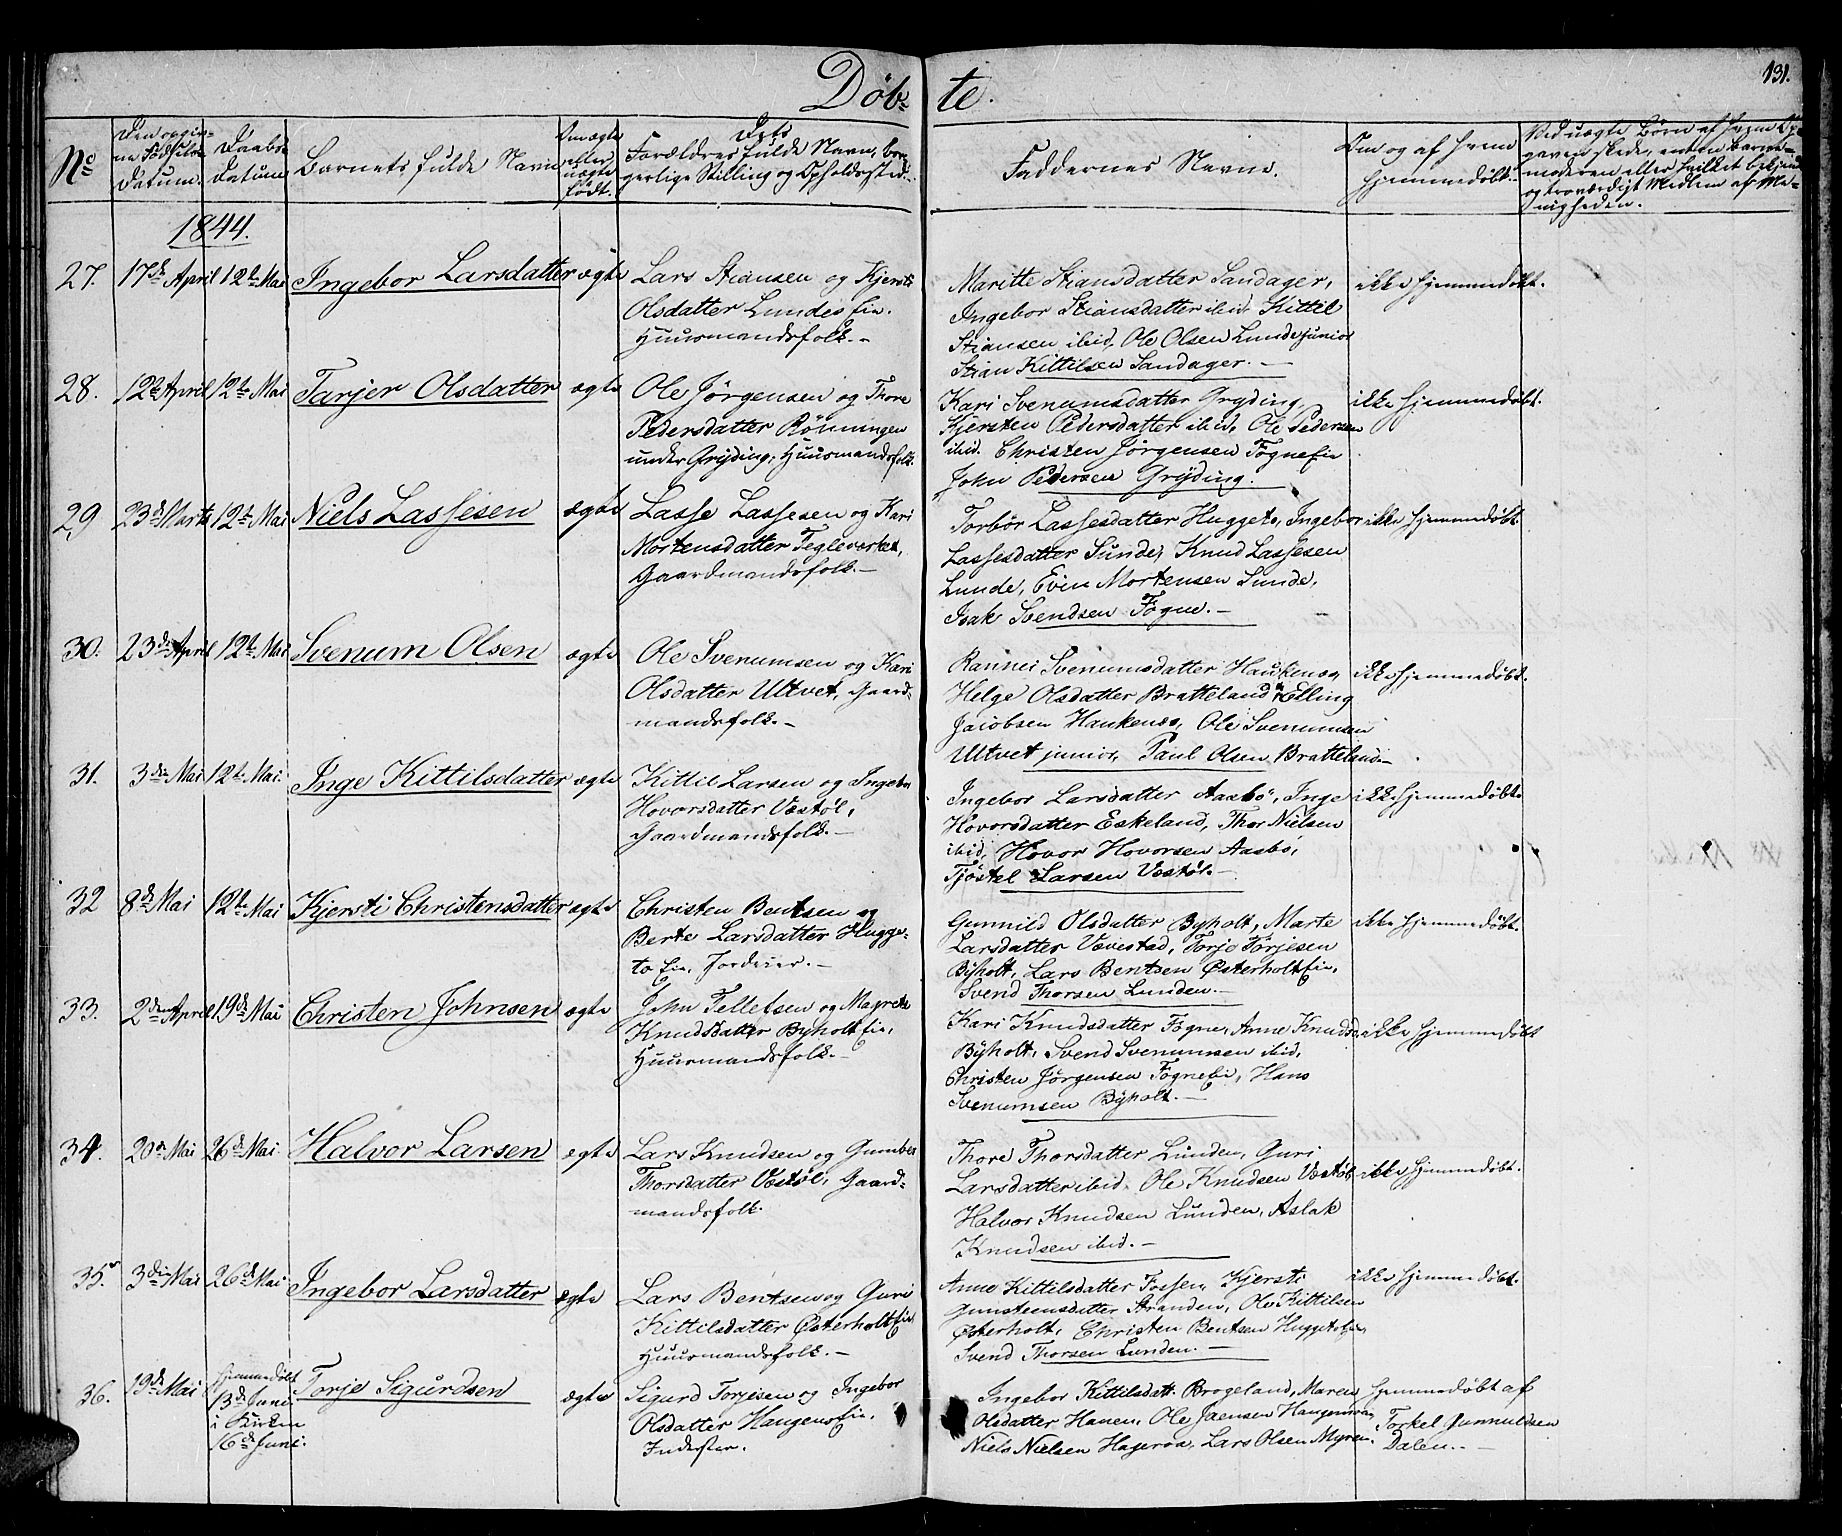 Døb-
te.
131.
No
Den opgiv-
ne Fødsels-
Datum.
Daabs-
Datum
Barnets fulde Navn
Om ægte
eller
uægte
født.
Dets
Forældres fulde Navn, bor-
gerlige Stilling og Opholdssted.
Faddernes Navne.
Om og af hvem
hjemmedøbt.
Ved uægte Børn af hvem Op-
gaven skede, enten Barne-
moderen eller hvilket bekjendt
og troværdigt Medlem af Me-
nigheden.
1844.
27. 17de April 12te Mai Ingebor Larsdatter ægte
Lars Stiansen og Kjersti
Olsdatter Lundeseie.
Huusmandsfolk.-
Maritte Stiansdatter Sandager,
Ingebor Stiansdatter ibid, Kittil
Stiansen ibid, Ole Olsen Lunde junior
Stian Kittilsen Sandager.-
ikke hjemmedøbt.
28. 12te April 12te Mai Tarjer Olsdatter ægte
Ole Jørgensen og Thore
Pedersdatter Rönningen
under Gryding, Huusmandsfolk.
Kari Svenumsdatter Gryding,
Kjersten Pedersdatter ibid, Ole Pedersen
ibid. Christen Jørgensen Fogneeie
John Pedersen Gryding.
ikke hjemmedøbt.
29 23de Marts 12te Mai Niels Lassesen ægte
Lasse Lassesen og Kari
Mortensdatter Tegleverket,
Gaardmandsfolk.-
Torbör Lassesdatter Huggeto, Ingebor
Lassesdatter Sunde, Knud Lassesen
Lunde, Even Mortensen Sunde,
Isak Svendsen Fogne.-
ikke hjemmedøbt
30. 23de April 12te Mai Svenum Olsen ægte
Ole Svenumsen og Kari
Olsdatter Ultvet, Gaard-
mandsfolk.-
Rannei Svenumsdatter Haukenæs
Helge Olsdatter Bratteland, Elling
Jacobsen Haukenæs, Ole Svenumsen
Ultvet junior, Paul Olsen Bratteland.-
ikke hjemmedøbt.
31. 3die Mai 12te Mai. Inge Kittilsdatter ægte
Kittil Larsen og Ingebor
Hovorsdatter Vestøl,
Gaardmandsfolk.-
Ingebor Larsdatter Aasbö, Inge
Hovorsdatter Eskeland, Thor Nielsen
ibid, Hovor Hovorsen Aasbo,
Tjöstel Larsen Vestøl.-
ikke hjemmedøbt.
32 8de Mai 12te Mai Kjersti Christensdatter ægte
Christen Bentsen og
Berte Larsdatter Hugge-
to Eie, Jordeier.-
Gunnild Olsdatter Byholt, Marte
Larsdatter Vævestad, Torjo Torjesen
Byholt, Lars Bentsen Østerholteie,
Svend Thorsen Lunden.-
ikke hjemmedøbt.
33. 2den April 19de Mai Christen Johnsen ægte
John Tellefsen og Magrete
Knudsdatter Byholteie,
Huusmandsfolk.-
Kari Knudsdatter Fogne, Anne Knudsd.
Byholt, Svend Svenumsen ibid,
Christen Jørgensen Fogneei, Hans
Svenumsen Byholt.-
ikke hjemmedøbt
34. 20de Mai 26de Mai. Halvor Larsen ægte
Lars Knudsen og Gunnber
Thorsdatter Vestøl, Gaard-
mandsfolk.
Thore Thorsdatter Lunden, Guri
Larsdatter ibid. Ole Knudsen Vestøl
Halvor Knudsen Lunden, Aslak
Knudsen ibid.-
ikke hjemmedøbt.
35. 3die Mai 26de Mai Ingebor Larsdatter ægte
Lars Bentsen og Guri
Kittilsdatter Østerholteie
Huusmandsfolk.-
Anne Kittilsdatter Fossen, Kjersti
Gunsteensdatter Stranden, Ole Kittilsen
Østerholt, Christen Bentsen Huggetoeie,
Svend Thorsen Lunden.-
ikke hjemmedøbt.
36. 19de Mai
hjemmedøbt
13de Juni
i Kirken
16de Juni.
Torje Sigurdsen ægte
Sigurd Torjesen og Ingebor
Olsdatter Haugenseie,
Inderster.
Ingebor Kittilsdatt. Brogeland, Maren
Olsdatter Hanen, Ole Jaensen Haugenseie,
Niels Nielsen Hageroa, Lars Olsen Myren.
hjemmedøbt af
Torkel Gunnuldsen
Dalen.-